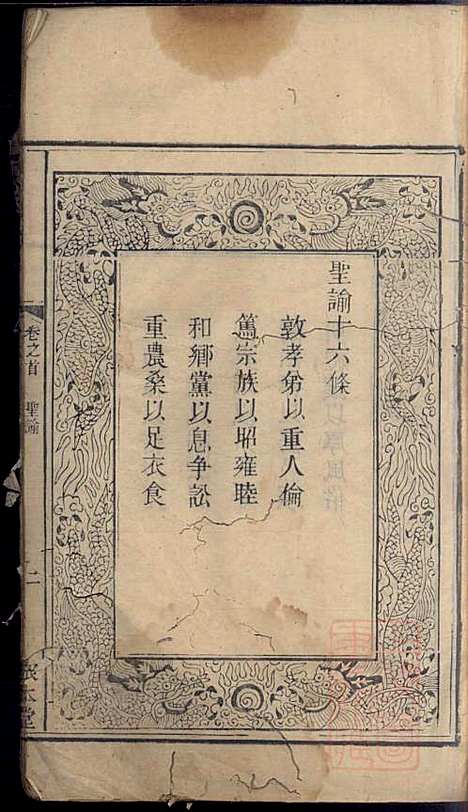 聖諭十六條
敦孝弟以重人倫
篤宗族以昭雍睦
和鄉黨以息争訟
重農桑以足衣食
卷之首
聖諭
二